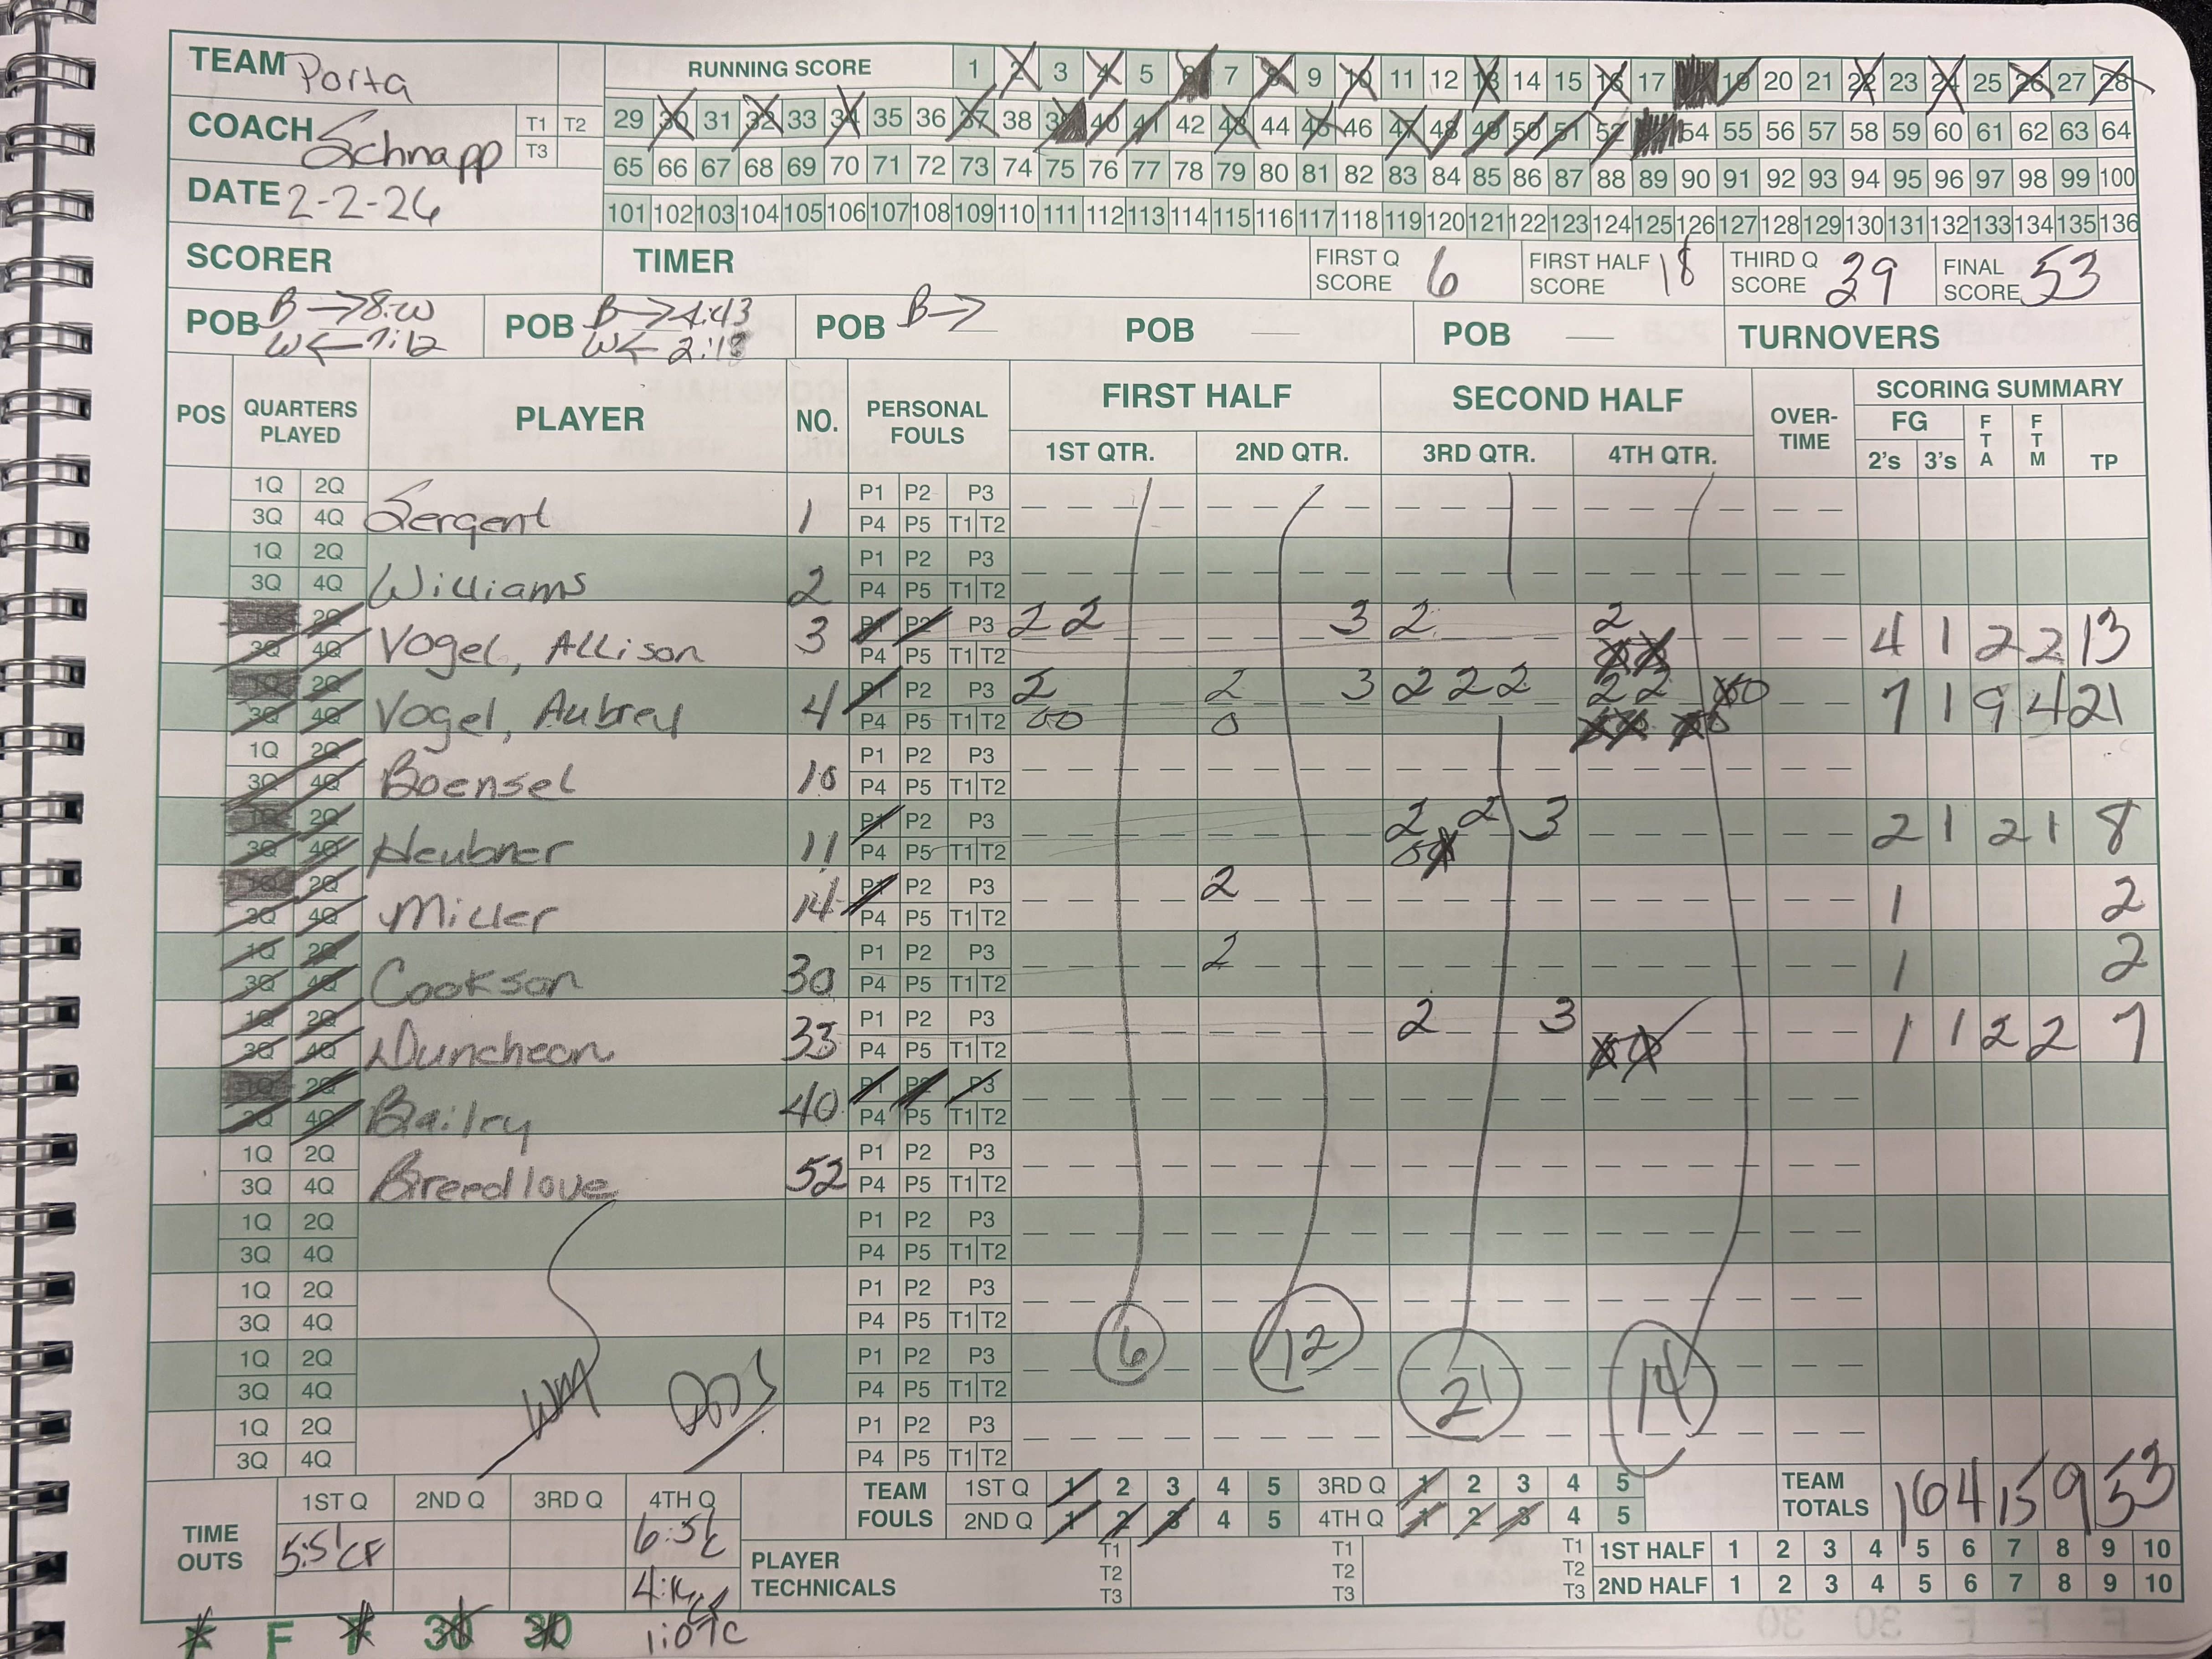 TEAM Porta
RUNNING SCORE 1 2 3 4 5 6 7 8 9 10 11 12 13 14 15 16 17 18 19 20 21 22 23 24 25 26 27 28
COACH Schnapp T1 T2 T3
29 30 31 32 33 34 35 36 37 38 39 40 41 42 43 44 45 46 47 48 49 50 51 52 53 54 55 56 57 58 59 60 61 62 63 64
65 66 67 68 69 70 71 72 73 74 75 76 77 78 79 80 81 82 83 84 85 86 87 88 89 90 91 92 93 94 95 96 97 98 99 100
DATE 2-2-26
101 102 103 104 105 106 107 108 109 110 111 112 113 114 115 116 117 118 119 120 121 122 123 124 125 126 127 128 129 130 131 132 133 134 135 136
SCORER TIMER FIRST Q SCORE 6 FIRST HALF SCORE 18 THIRD Q SCORE 39 FINAL SCORE 53
POB B→8:00 W←7:12 POB B→4:43 W←2:18 POB B→ POB POB TURNOVERS
POS QUARTERS PLAYED PLAYER NO. PERSONAL FOULS FIRST HALF SECOND HALF OVER-TIME SCORING SUMMARY
1ST QTR. 2ND QTR. 3RD QTR. 4TH QTR. FG 2's 3's FTA FTM TP
1Q 2Q P1 P2 P3
3Q 4Q Sergent 1 P4 P5 T1 T2
1Q 2Q P1 P2 P3
3Q 4Q Williams 2 P4 P5 T1 T2
1Q 2Q P1 P2 P3 2 2 3 2 2
3Q 4Q Vogel, Allison 3 P4 P5 T1 T2 4 1 2 2 13
1Q 2Q P1 P2 P3 2 2 3 2 2 2 2 2
3Q 4Q Vogel, Aubrey 4 P4 P5 T1 T2 00 0 7 1 9 4 21
1Q 2Q P1 P2 P3
3Q 4Q Boensel 10 P4 P5 T1 T2
1Q 2Q P1 P2 P3 2 2 3
3Q 4Q Heubner 11 P4 P5 T1 T2 2 1 2 1 8
1Q 2Q P1 P2 P3 2
3Q 4Q Miller 14 P4 P5 T1 T2 1 2
1Q 2Q P1 P2 P3 2
3Q 4Q Cookson 30 P4 P5 T1 T2 1 2
1Q 2Q P1 P2 P3 2 3
3Q 4Q Duncheon 33 P4 P5 T1 T2 1 1 2 2 7
1Q 2Q P1 P2 P3
3Q 4Q Bailey 40 P4 P5 T1 T2
1Q 2Q P1 P2 P3
3Q 4Q Breedlove 52 P4 P5 T1 T2
1Q 2Q P1 P2 P3
3Q 4Q P4 P5 T1 T2
1Q 2Q P1 P2 P3
3Q 4Q P4 P5 T1 T2
1Q 2Q P1 P2 P3 6 12 21 14
3Q 4Q P4 P5 T1 T2
1Q 2Q P1 P2 P3
3Q 4Q P4 P5 T1 T2
TIME OUTS 1ST Q 2ND Q 3RD Q 4TH Q
TEAM FOULS 1ST Q 1 2 3 4 5 3RD Q 1 2 3 4 5
2ND Q 1 2 3 4 5 4TH Q 1 2 3 4 5
TEAM TOTALS 16 4 15 9 53
PLAYER TECHNICALS T1 T2 T3 T1 T2 T3 T1 T2 T3
1ST HALF 1 2 3 4 5 6 7 8 9 10
2ND HALF 1 2 3 4 5 6 7 8 9 10
F F F 30 30 1:07C